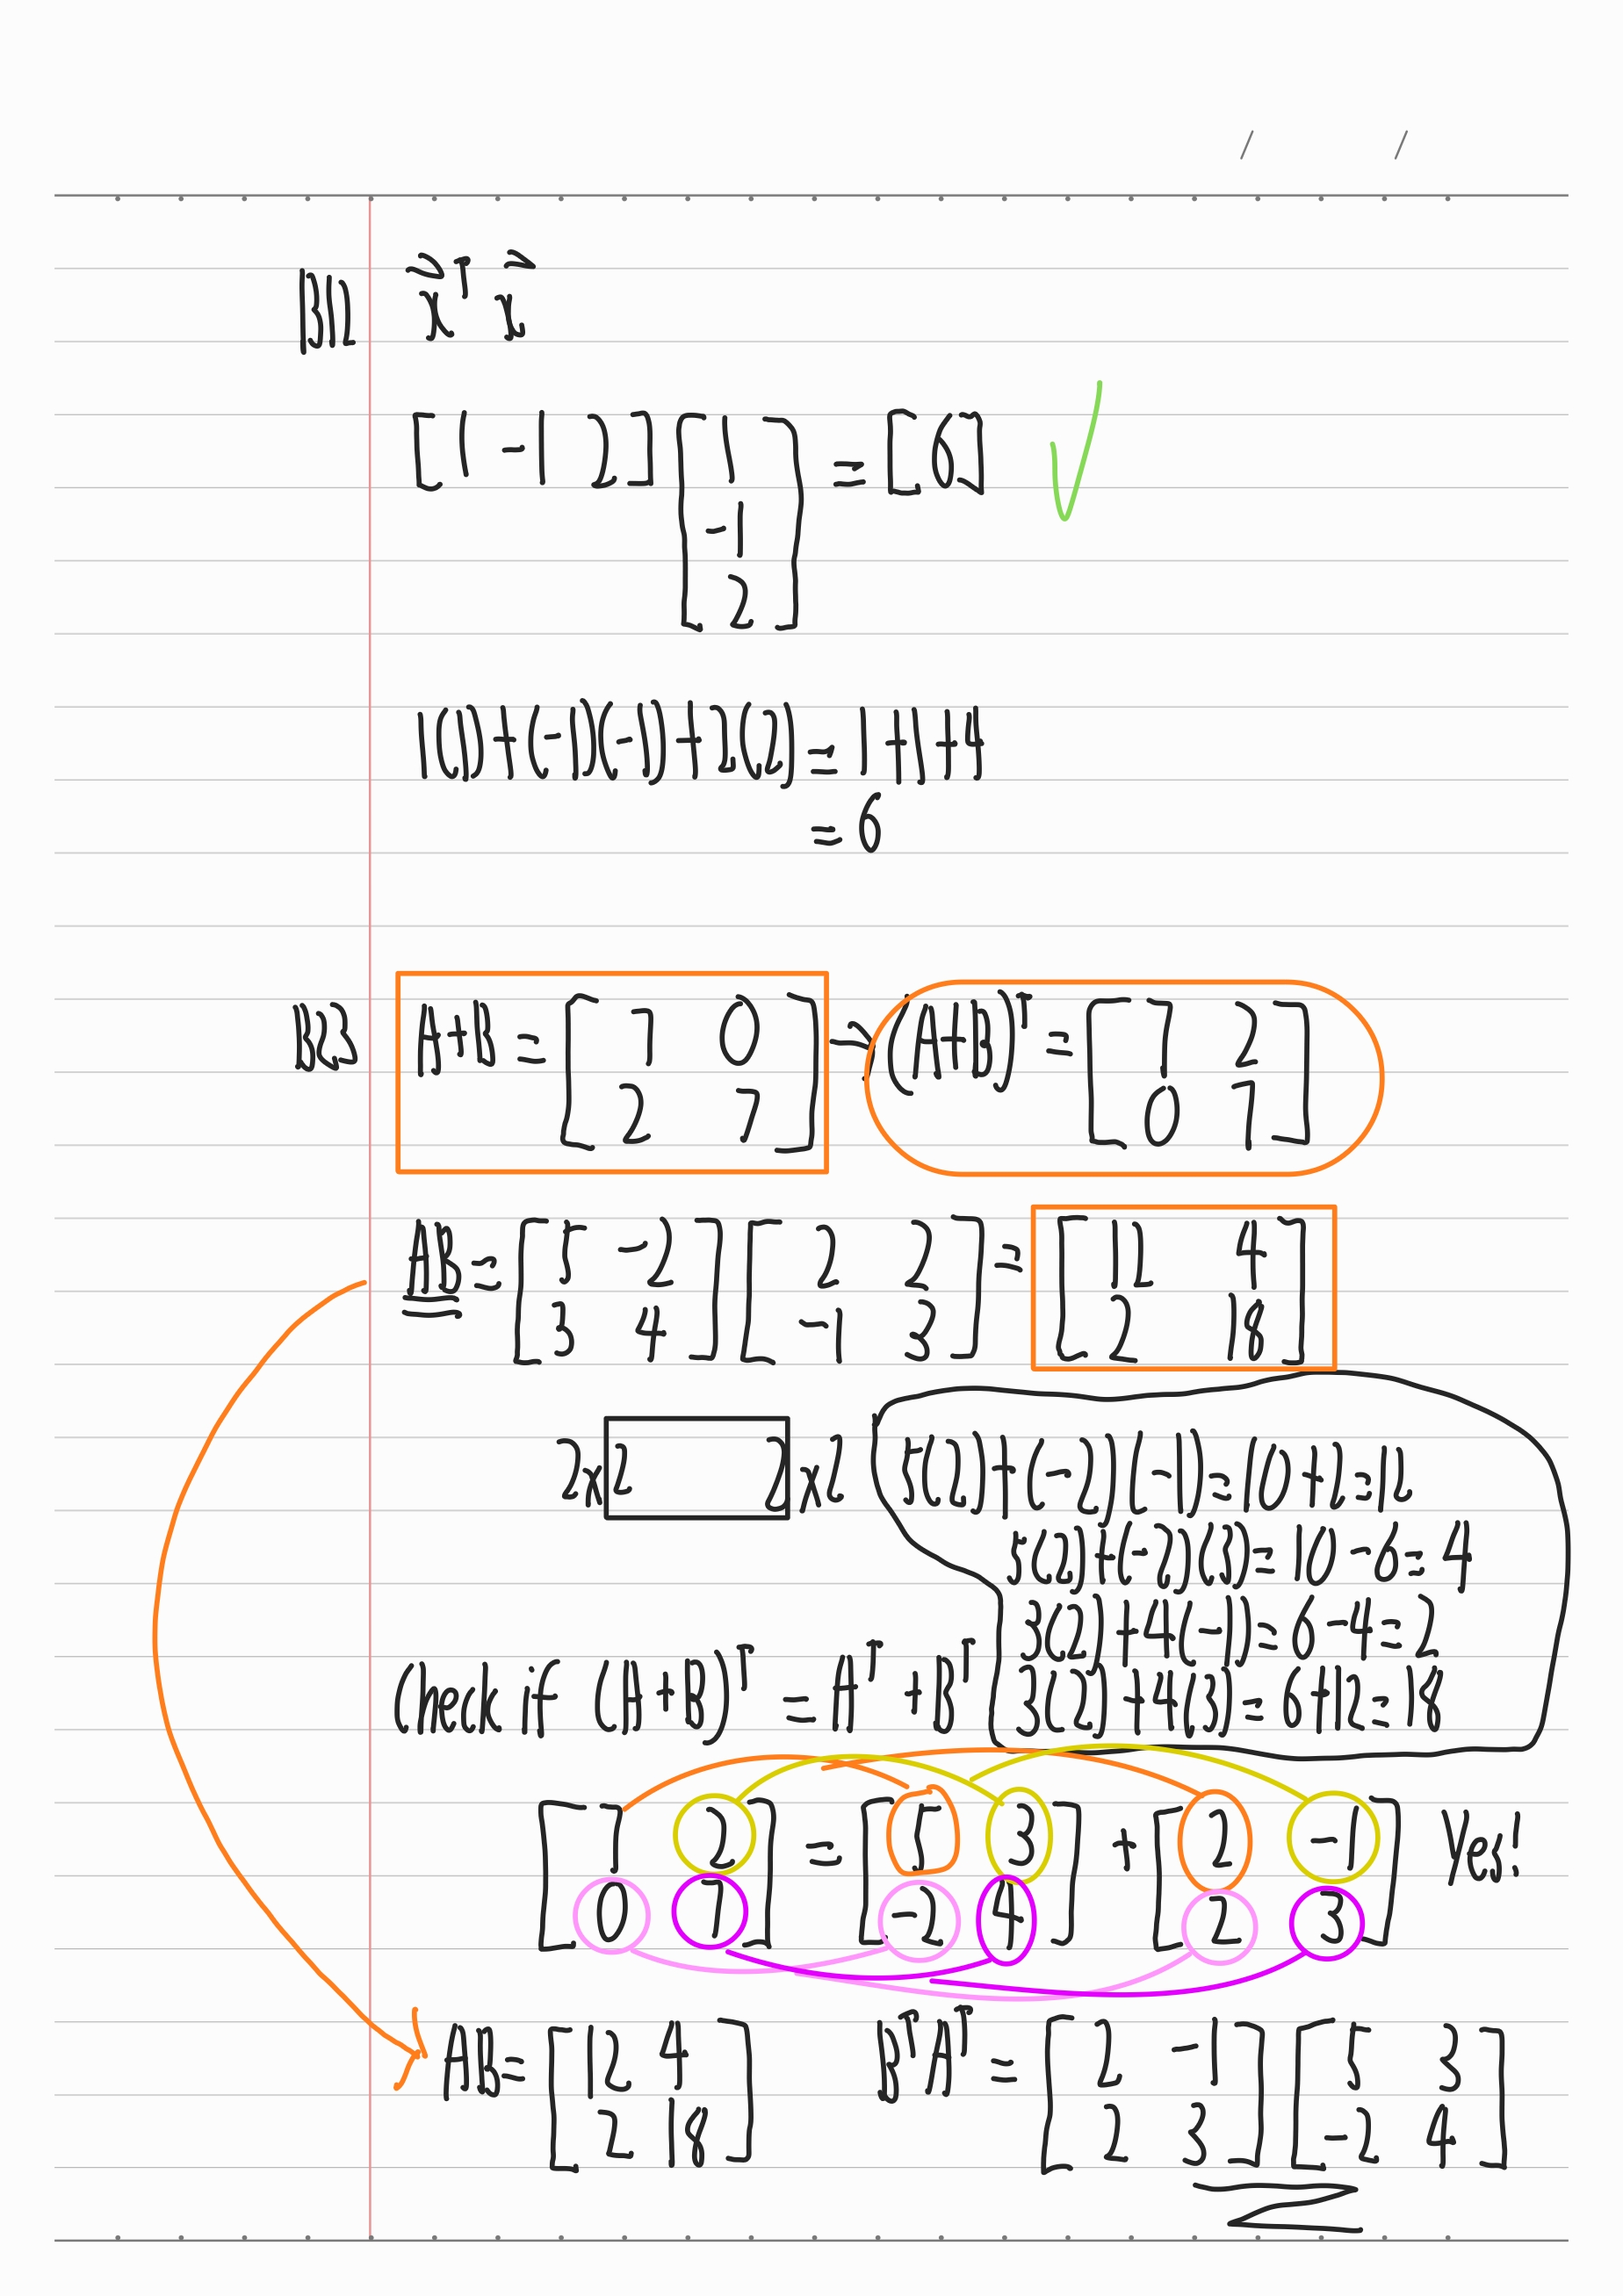 B12 x⃗ᵀ x⃗
[1 -1 2] [1 -1 2] = [6] ✓
1(1)+(-1)(-1)+2(2) = 1+1+4
= 6
B23 A+B = [7 0 2 7] → (A+B)ᵀ = [7 2 0 7]
AB = [5 -2 3 4] [2 2 -1 3] = [12 4 2 18]
2x2 2x2
5(2)+(-2)(-1)=10+2=12
5(2)+(-2)(3)=10-6=4
3(2)+4(-1)=6-4=2
3(2)+4(3)=6+12=18
Check if (A+B)ᵀ = Aᵀ + Bᵀ
[7 2 0 7] = [5 3 -2 4] + [2 -1 2 3] Yes!
AB= [12 4 2 18] BᵀAᵀ = [2 -1 2 3] [5 3 -2 4]